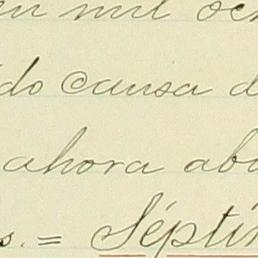 en mil oc
do causa d
ahora ab
s. = Sépti